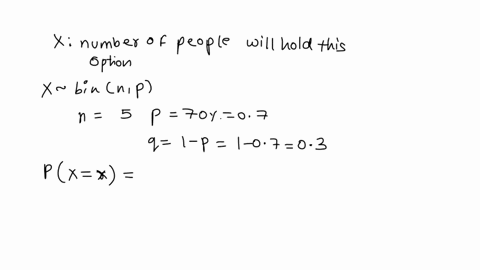 X: number of people will hold this
option
X ~ bin(n,p)
n = 5 p = 70%. = 0.7
q = 1-p = 1-0.7 = 0.3
P(X=x) =